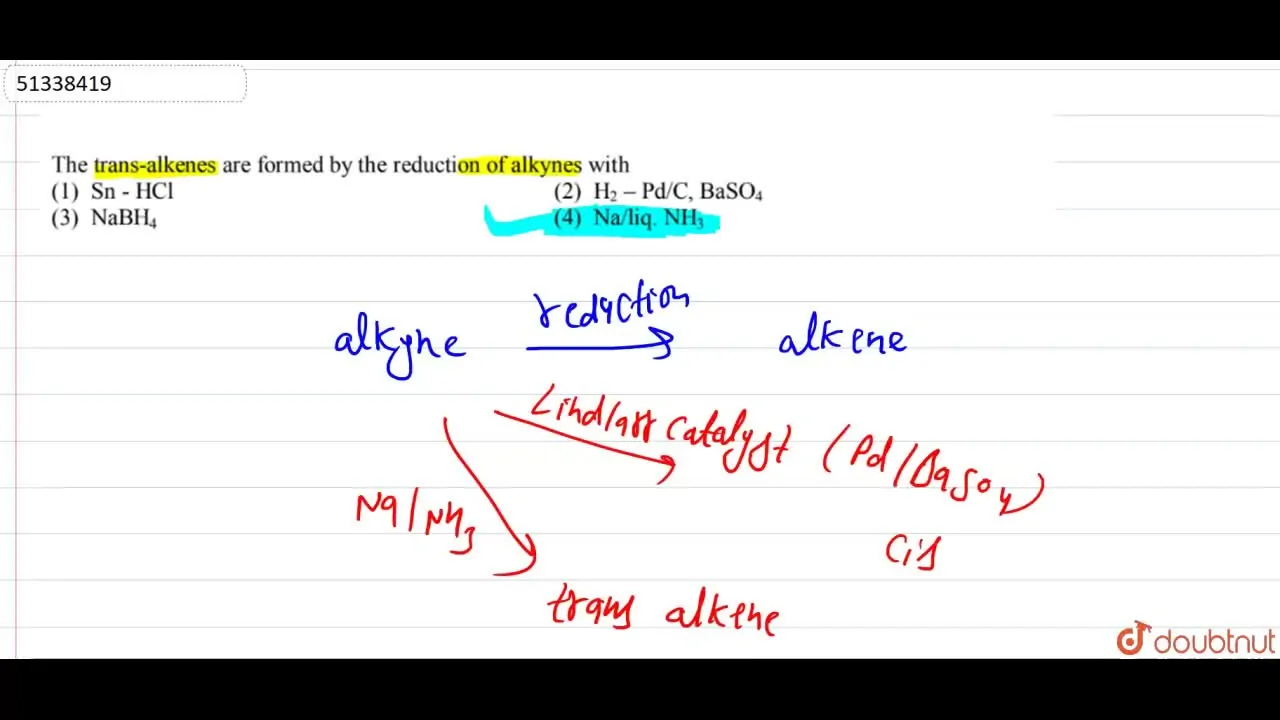 51338419
The trans-alkenes are formed by the reduction of alkynes with
(1) Sn - HCl (2) H₂ – Pd/C, BaSO₄
(3) NaBH₄ (4) Na/liq. NH₃
alkyne reduction alkene
Lindlarr catalyst (Pd/BaSO₄)
Na/NH₃
cis
trans alkene
doubtnut